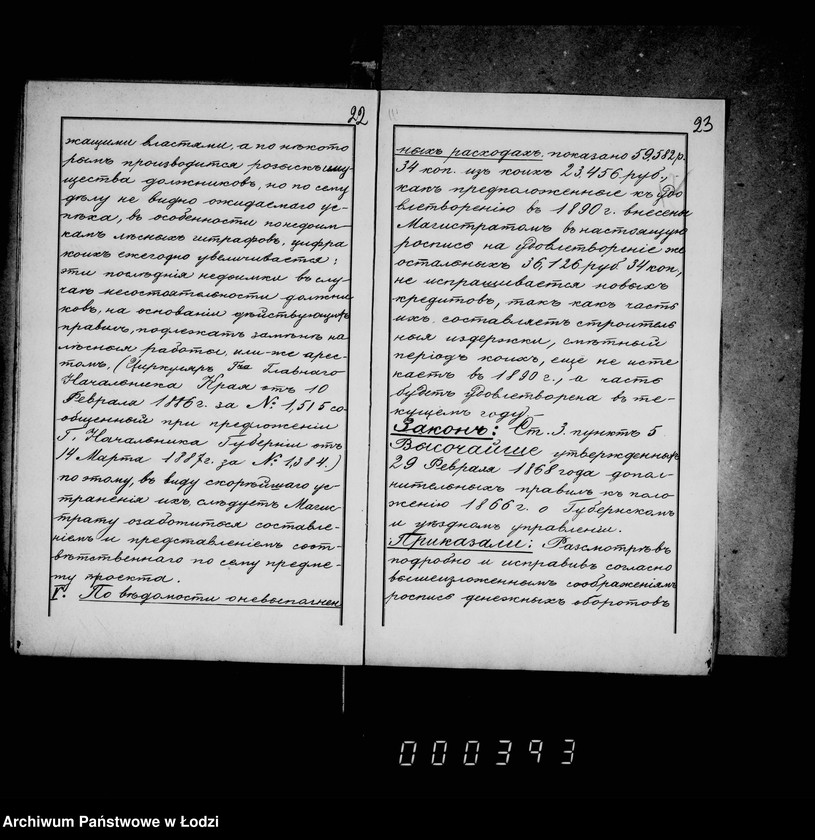 22
жащими властями, а по нѣкото
рымъ производится розыскъ иму
щества должниковъ, но по сему
дѣлу не видно ожидаемаго ус-
пѣха, въ особенности по недоим-
камъ лѣсныхъ штрафовъ, цифра
коихъ ежегодно увеличивается;
эти послѣднія недоимки въ слу-
чаѣ несостоятельности должни
ковъ, на основаніи дѣйствующихъ
правилъ, подлежатъ замѣнѣ на
лѣсныя работы, или-же арес-
томъ, (Циркуляръ Г-на Главнаго
Начальника Края отъ 10
Февраля 1886 г. за № 1,515 со-
общенный при предложеніи
Г. Начальника Губерніи отъ
14 Марта 1887 г. за № 1,384.)
поэтому, въ виду скорѣйшаго ус-
траненія ихъ, слѣдуетъ Магис-
трату озаботиться составле-
ніемъ и представленіемъ соот-
вѣтственнаго по сему предме-
ту проекта.
V. По вѣдомости о невыполнен
23
ныхъ расходахъ показано 59,582 р.
34 коп. изъ коихъ 23,456 руб.,
какъ предположенные къ удо
влетворенію въ 1890 г. внесены
Магистратомъ въ настоящую
роспись на удовлетвореніе же
остальныхъ 36,126 руб 34 коп,
не испрашивается новыхъ
кредитовъ, такъ какъ часть
ихъ составляетъ строитель
ныя издержки, смѣтный
періодъ коихъ, еще не исте
каетъ въ 1890 г., а часть
будетъ удовлетворена въ те-
кущемъ году.
Законъ: Ст. 3. пунктъ 5
Высочайше утвержденныхъ
29 Февраля 1868 года допол-
нительныхъ правилъ къ поло
женію 1866 г. о Губернскомъ
и уѣздномъ управленіи.
Приказали: Разсмотрѣвъ
подробно и исправивъ согласно
вышеизложеннымъ соображеніямъ
роспись денежныхъ оборотовъ
000393
Archiwum Państwowe w Łodzi